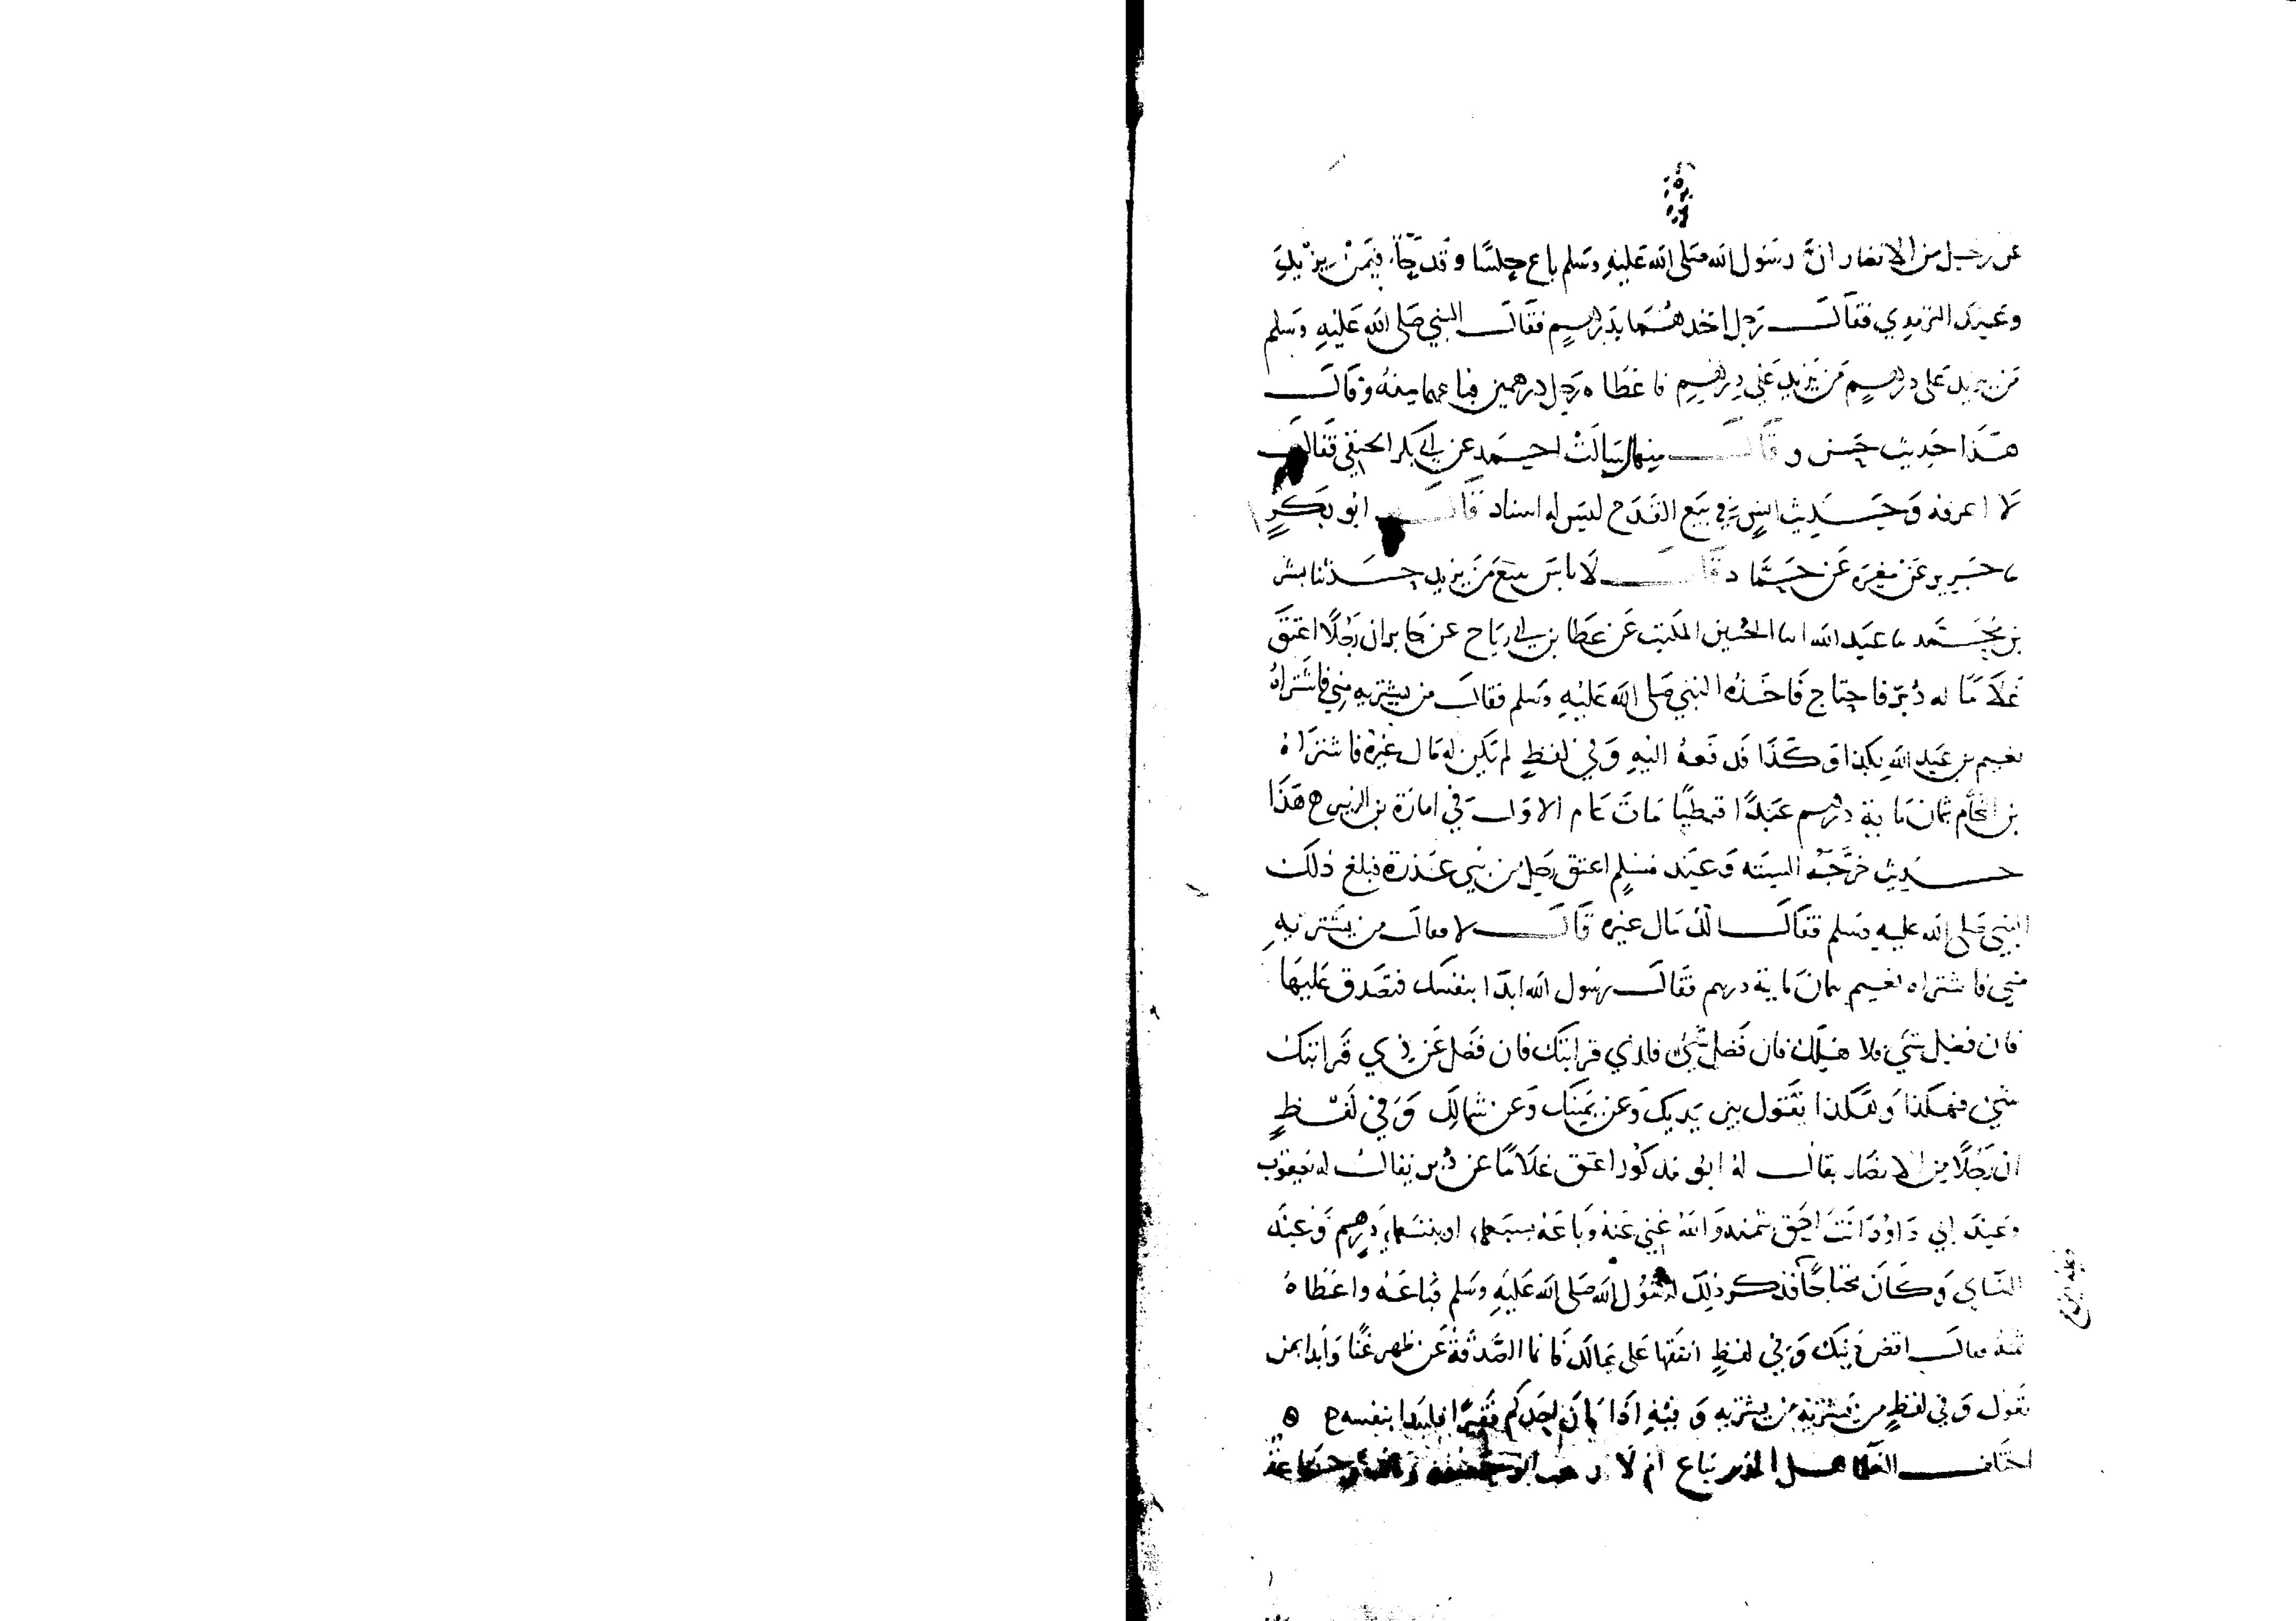 عن رجل من الانصار ان رسول الله صلى الله عليه وسلم باع حلسا وقدحا فيمن يزيد
وعند الترمذي فقال رجل اخذهما بدرهم فقال النبي صلى الله عليه وسلم
من يزيد على درهم من يزيد على درهم فاعطاه رجل درهمين فباعهما منه وقال
هذا حديث حسن وقال مهنا سالت احمد عن ابي بكر الحنفي فقال
لا اعرفه وحديث انس في بيع القدح ليس له اسناد قال ابو بكر
ثنا جرير عن مغيرة عن حماد قال لا باس ببيع من يزيد حدثنا بشر
بن محمد ثنا عبد الله انا الحسين المكتب عن عطا بن ابي رباح عن جابر ان رجلا اعتق
غلاما له دبر فاحتاج فاخذه النبي صلى الله عليه وسلم فقال من يشتريه مني فاشتراه
نعيم بن عبد الله بكذا وكذا فدفعه اليه وفي لفظ لم يكن له مال غيره فاشتراه
بن النحام بثمان ماية درهم عبدا قبطيا مات عام الاول في امارة بن الزبير هذا
حديث خرجه الستة وعند مسلم اعتق رجل من بني عذرة فبلغ ذلك
النبي صلى الله عليه وسلم فقال الك مال غيره قال لا فقال من يشتريه
مني فاشتراه نعيم بثمان ماية درهم فقال رسول الله ابدا بنفسك فتصدق عليها
فان فضل شي فلاهلك فان فضل شي فلذي قرابتك فان فضل عن ذي قرابتك
شي فهكذا وهكذا يقول بين يديك وعن يمينك وعن شمالك وفي لفظ
ان رجلا من الانصار يقال له ابو مذكور اعتق غلاما عن دبر يقال له يعقوب
وعند ابي داود انت احق بثمنه والله غني عنه وباعه بسبعماية او بتسعماية درهم وعند
النساي وكان محتاجا فذكر ذلك لرسول الله صلى الله عليه وسلم فباعه واعطاه
ثمنه فقال اقض دينك وفي لفظ انفقها على عيالك فانما الصدقة عن ظهر غنا وابدا بمن
تعول وفي لفظ من يشتريه من يشتريه وفيه اذا كان احدكم فقيرا فليبدا بنفسه ه
اختلف العلما هل المدبر يباع ام لا